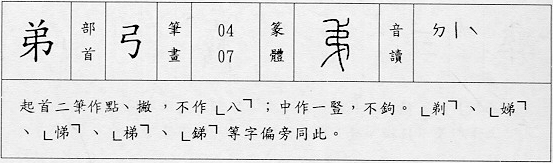 弟 部首 弓 筆畫 04 07 篆體 音讀 ㄉㄧˋ
起首二筆作點、撇，不作「八」；中作一豎，不鉤。「剃」、「娣」
、「悌」、「梯」、「銻」等字偏旁同此。